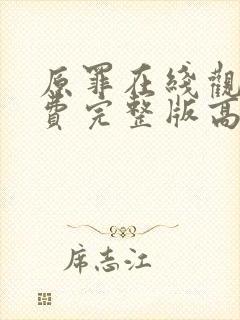 原罪在綫觀
費完整版高
席志江